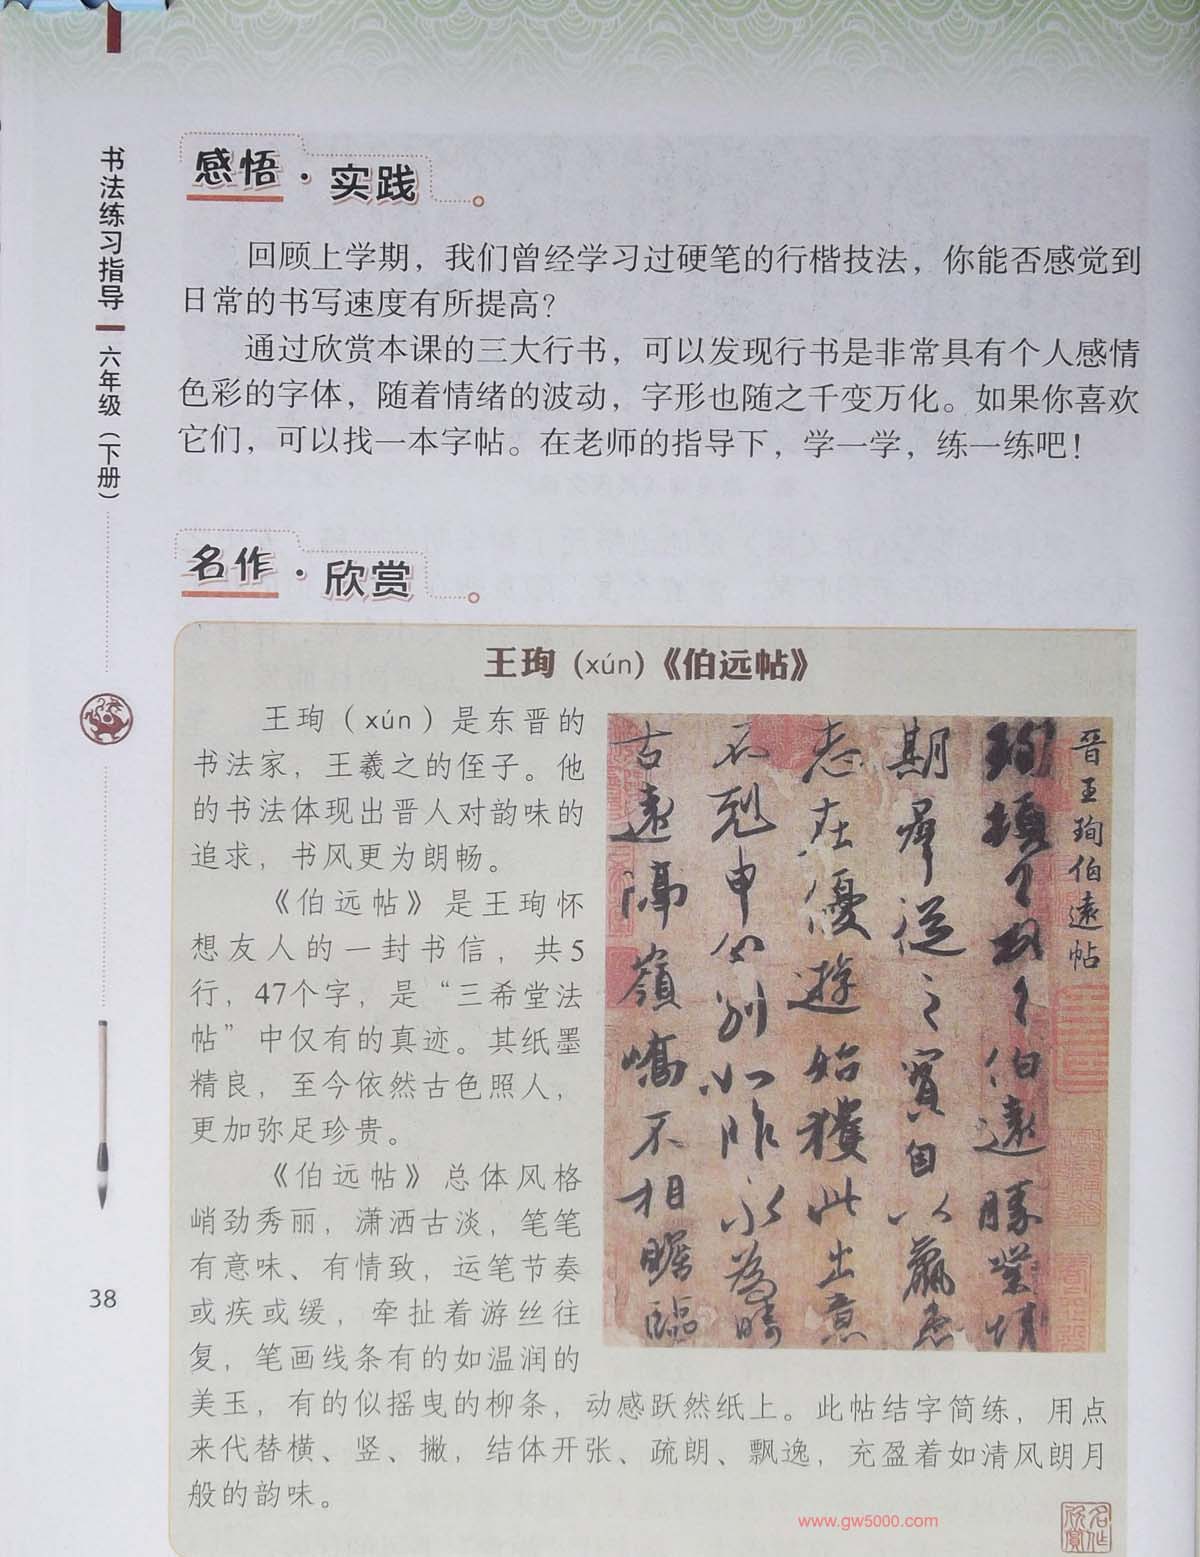 书法练习指导 六年级（下册）
感悟·实践
回顾上学期，我们曾经学习过硬笔的行楷技法，你能否感觉到
日常的书写速度有所提高？
通过欣赏本课的三大行书，可以发现行书是非常具有个人感情
色彩的字体，随着情绪的波动，字形也随之千变万化。如果你喜欢
它们，可以找一本字帖。在老师的指导下，学一学，练一练吧！
名作·欣赏
王珣（xún）《伯远帖》
王珣（xún）是东晋的
书法家，王羲之的侄子。他
的书法体现出晋人对韵味的
追求，书风更为朗畅。
《伯远帖》是王珣怀
想友人的一封书信，共5
行，47个字，是“三希堂法
帖”中仅有的真迹。其纸墨
精良，至今依然古色照人，
更加弥足珍贵。
《伯远帖》总体风格
峭劲秀丽，潇洒古淡，笔笔
有意味、有情致，运笔节奏
或疾或缓，牵扯着游丝往
复，笔画线条有的如温润的
美玉，有的似摇曳的柳条，动感跃然纸上。此帖结字简练，用点
来代替横、竖、撇，结体开张、疏朗、飘逸，充盈着如清风朗月
般的韵味。
晋王珣伯遠帖
珣頓首頓首伯遠勝業情
期群從之寶自以羸患
志在優遊始獲此出意
不剋申分別如昨永為疇
古遠隔嶺嶠不相瞻臨
38
www.gw5000.com
名作欣赏